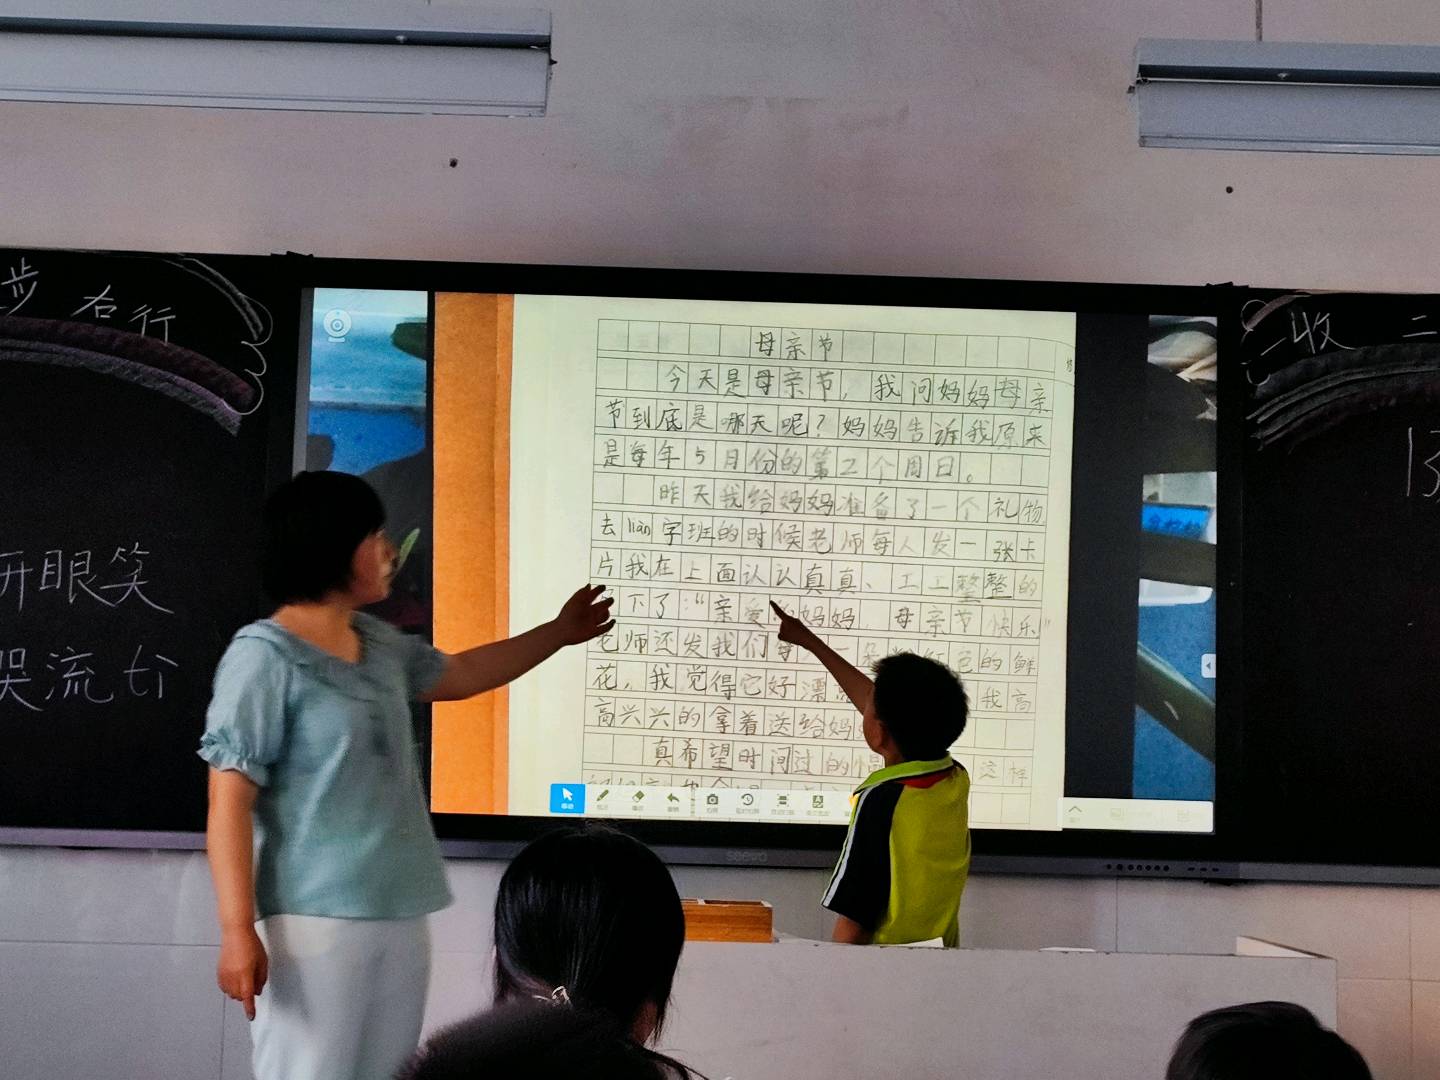 步 右行
开眼笑
哭流
一收 二
母亲节
今天是母亲节，我问妈妈母亲
节到底是哪天呢？妈妈告诉我原来
是每年5月份的第二个周日。
昨天我给妈妈准备了一个礼物
去liàn字班的时候老师每人发一张卡
片我在上面认认真真、工工整整的
下了：“亲爱妈妈 母亲节快乐”
老师还发我们每一朵粉红色的鲜
花，我觉得它好漂 我高
高兴兴的拿着送给妈
真希望时间过的慢 这样
seewo